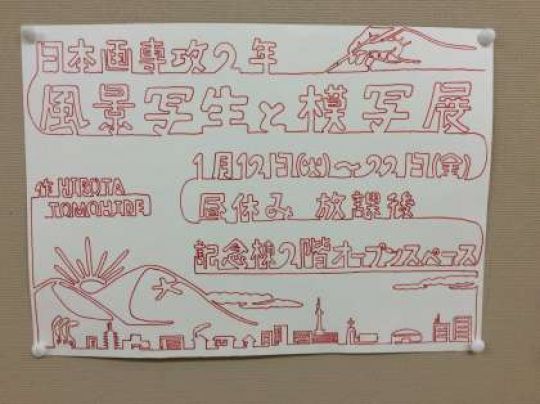 日本画専攻2年
風景写生と模写展
1月12日(火)〜22日(金)
作 HIROTA
TOMOHIRE
昼休み 放課後
記念棟2階オープンスペース
大